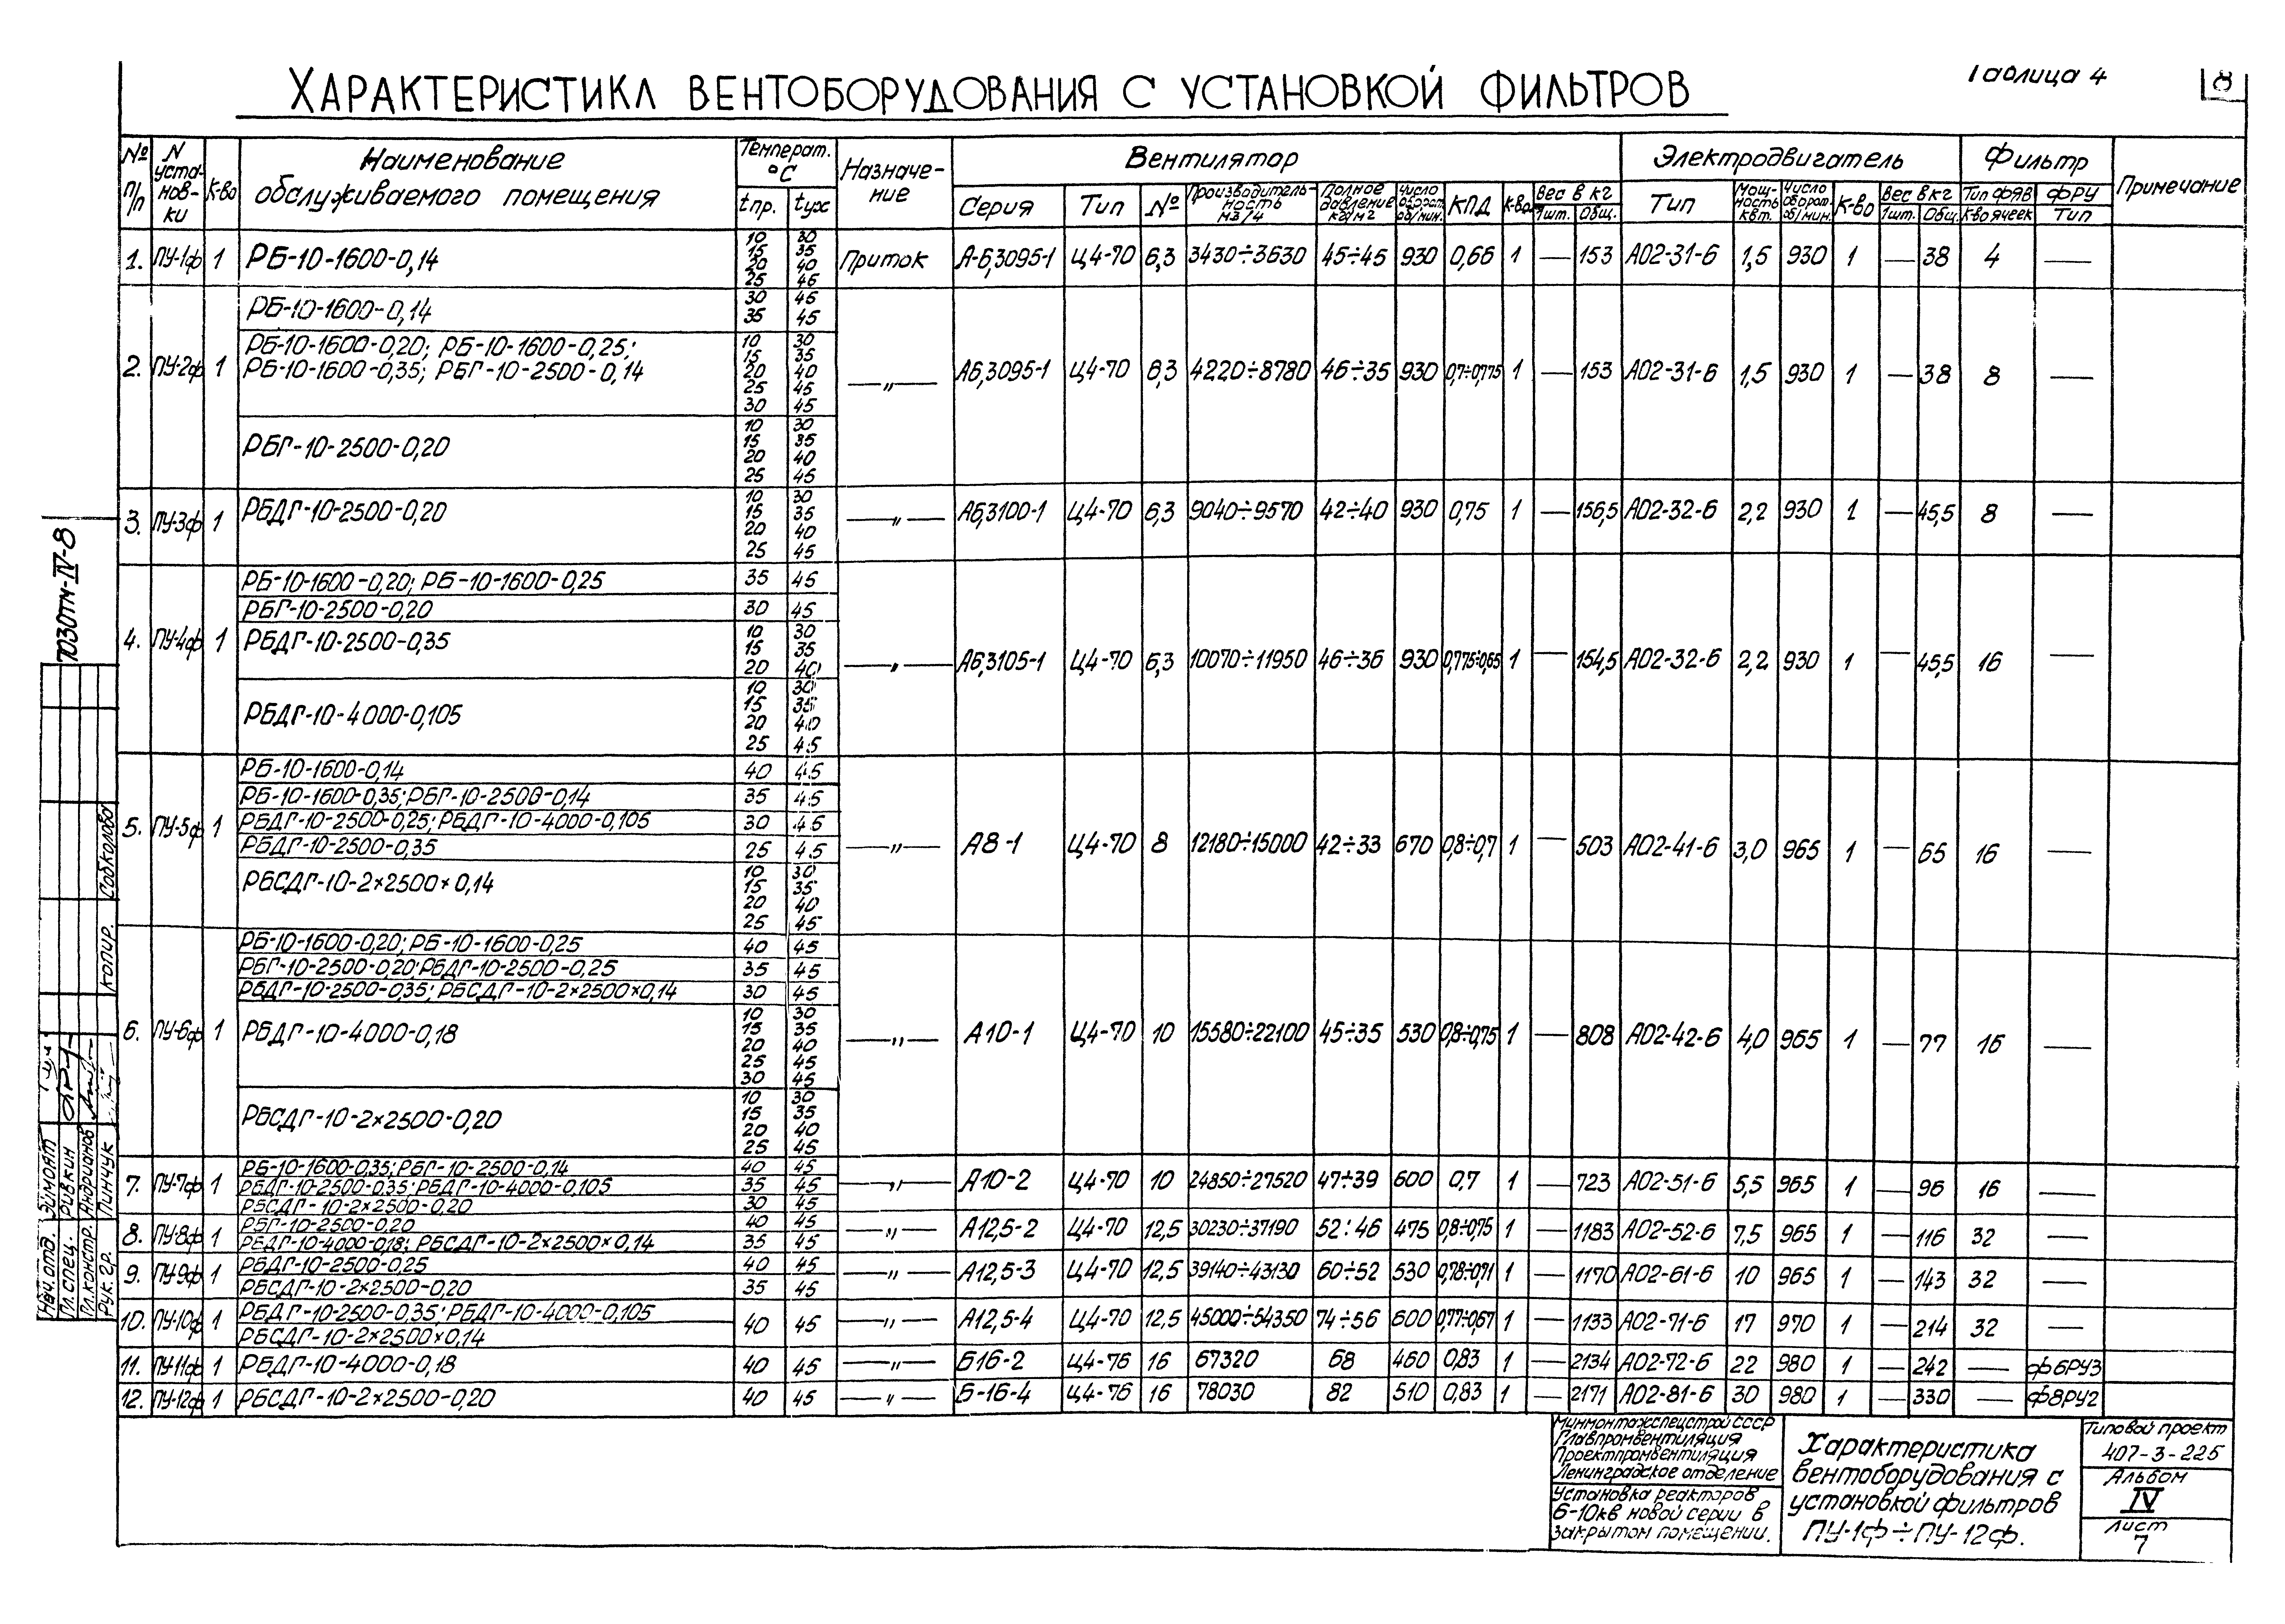 Таблица 4
8
ХАРАКТЕРИСТИКА ВЕНТОБОРУДОВАНИЯ С УСТАНОВКОЙ ФИЛЬТРОВ
№ п/п | N установ-ки | К-во | Наименование обслуживаемого помещения | Температ. °С tпр. | tух | Назначе-ние | Вентилятор Серия | Тип | № | Производитель-ность м3/ч | Полное давление кг/м2 | Число оборот. об/мин. | КПД | К-во | Вес в кг 1шт. | Общ. | Электродвигатель Тип | Мощ-ность квт. | Число оборот. об/мин. | К-во | Вес в кг 1шт. | Общ. | Фильтр Тип ФЯВ К-во ячеек | ФРУ Тип | Примечание
1. ПУ-1ф 1 РБ-10-1600-0,14 10 30 15 35 20 40 25 45 Приток А-6,3095-1 Ц4-70 6,3 3430÷3630 45÷45 930 0,66 1 — 153 АО2-31-6 1,5 930 1 — 38 4 —
2. ПУ-2ф 1 РБ-10-1600-0,14 30 45 35 45
РБ-10-1600-0,20; РБ-10-1600-0,25; 10 30 15 35
РБ-10-1600-0,35; РБГ-10-2500-0,14 20 40 25 45 30 45 —"— А6,3095-1 Ц4-70 6,3 4220÷8780 46÷35 930 0,7÷0,775 1 — 153 АО2-31-6 1,5 930 1 — 38 8 —
РБГ-10-2500-0,20 10 30 15 35 20 40 25 45
3. ПУ-3ф 1 РБДГ-10-2500-0,20 10 30 15 35 20 40 25 45 —"— А6,3100-1 Ц4-70 6,3 9040÷9570 42÷40 930 0,75 1 — 156,5 АО2-32-6 2,2 930 1 — 45,5 8 —
РБ-10-1600-0,20; РБ-10-1600-0,25 35 45
РБГ-10-2500-0,20 30 45
4. ПУ-4ф 1 РБДГ-10-2500-0,35 10 30 15 35 20 40 —"— А6,3105-1 Ц4-70 6,3 10070÷11950 46÷36 930 0,775÷0,65 1 — 154,5 АО2-32-6 2,2 930 1 — 45,5 16 —
РБДГ-10-4000-0,105 10 30 15 35 20 40 25 45
РБ-10-1600-0,14 40 45
РБ-10-1600-0,35; РБГ-10-2500-0,14 35 45
РБДГ-10-2500-0,25; РБДГ-10-4000-0,105 30 45
5. ПУ-5ф 1 РБДГ-10-2500-0,35 25 45 —"— А8-1 Ц4-70 8 12180÷15000 42÷33 670 0,8÷0,7 1 — 503 АО2-41-6 3,0 965 1 — 65 16 —
РБСДГ-10-2×2500×0,14 10 30 15 35 20 40 25 45
РБ-10-1600-0,20; РБ-10-1600-0,25 40 45
РБГ-10-2500-0,20; РБДГ-10-2500-0,25 35 45
РБДГ-10-2500-0,35; РБСДГ-10-2×2500×0,14 30 45
6. ПУ-6ф 1 РБДГ-10-4000-0,18 10 30 15 35 20 40 25 45 30 45 —"— А10-1 Ц4-70 10 15580÷22100 45÷35 530 0,8÷0,75 1 — 808 АО2-42-6 4,0 965 1 — 77 16 —
РБСДГ-10-2×2500-0,20 10 30 15 35 20 40 25 45
РБ-10-1600-0,35; РБГ-10-2500-0,14 40 45
7. ПУ-7ф 1 РБДГ-10-2500-0,35; РБДГ-10-4000-0,105 35 45 —"— А10-2 Ц4-70 10 24850÷27520 47÷39 600 0,7 1 — 723 АО2-51-6 5,5 965 1 — 96 16 —
РБСДГ-10-2×2500-0,20 30 45
РБГ-10-2500-0,20 40 45
8. ПУ-8ф 1 РБДГ-10-4000-0,18; РБСДГ-10-2×2500×0,14 35 45 —"— А12,5-2 Ц4-70 12,5 30230÷37190 52÷46 475 0,8÷0,75 1 — 1183 АО2-52-6 7,5 965 1 — 116 32 —
РБДГ-10-2500-0,25 40 45
9. ПУ-9ф 1 РБСДГ-10-2×2500-0,20 35 45 —"— А12,5-3 Ц4-70 12,5 39140÷43130 60÷52 530 0,78÷0,71 1 — 1170 АО2-61-6 10 965 1 — 143 32 —
10. ПУ-10ф 1 РБДГ-10-2500-0,35; РБДГ-10-4000-0,105 40 45 —"— А12,5-4 Ц4-70 12,5 45000÷54350 74÷56 600 0,77÷0,67 1 — 1133 АО2-71-6 17 970 1 — 214 32 —
РБСДГ-10-2×2500×0,14
11. ПУ-11ф 1 РБДГ-10-4000-0,18 40 45 —"— Б16-2 Ц4-76 16 67320 68 460 0,83 1 — 2134 АО2-72-6 22 980 1 — 242 — Ф6РУ3
12. ПУ-12ф 1 РБСДГ-10-2×2500-0,20 40 45 —"— Б-16-4 Ц4-76 16 78030 82 510 0,83 1 — 2171 АО2-81-6 30 980 1 — 330 — Ф8РУ2
Минмонтажспецстрой СССР
Главпромвентиляция
Проектпромвентиляция
Ленинградское отделение
Установка реакторов
6-10кв новой серии в
закрытом помещении.
Характеристика
вентоборудования с
установкой фильтров
ПУ-1ф÷ПУ-12ф.
Типовой проект
407-3-225
Альбом
IV
Лист
7
7030тм-IV-8
Копир.
Нач. отд.
Гл. спец. Ривкин
Гл. констр. Андрианов
Рук. гр. Пинчук